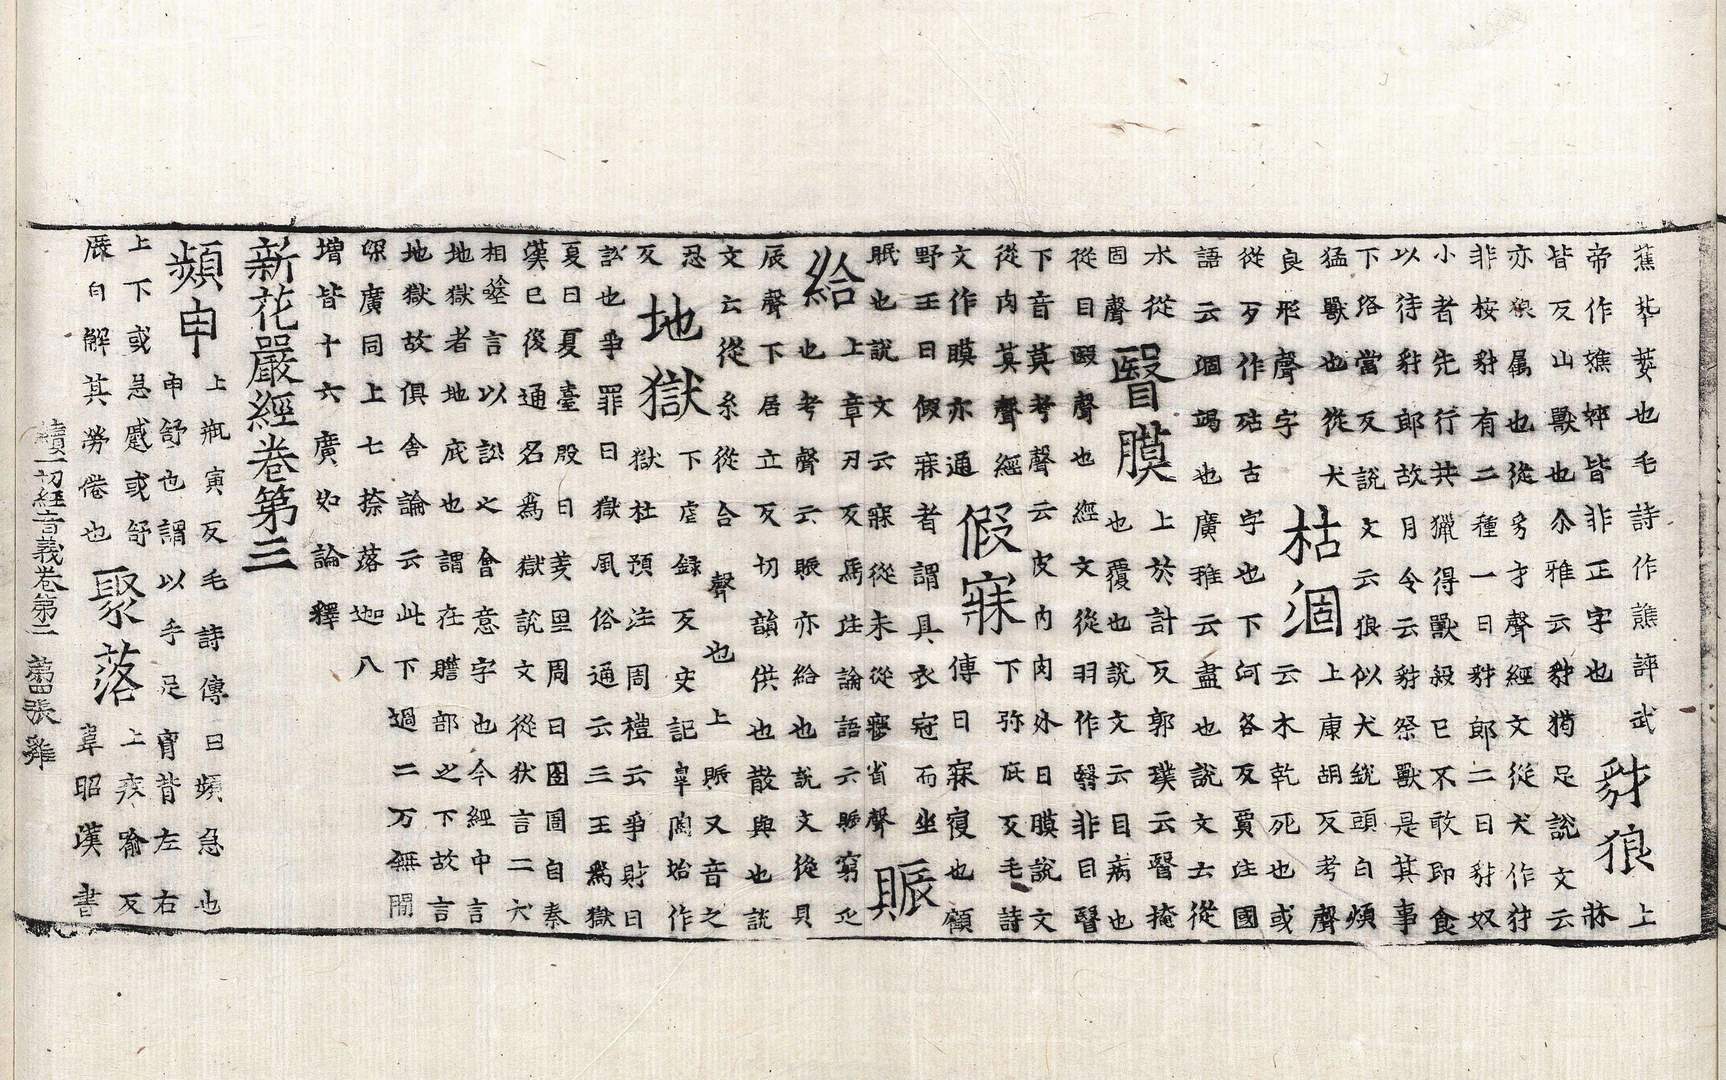 蕉也毛詩作譙誶武
帝作誶皆非正字也
豺狼
上
牀
皆反山獸也尒雅云豺猶足說文云
亦狼属也從豸才聲經文從犬作犲
非按豺有二種一曰豺郎二曰豺奴
小者先行共獵得獸殺已不敢即食
以待豺郎故月令云豺祭獸是其事
下洛當反說文云狼似犬銳頭白頰
猛獸也從犬
良形聲字
枯涸
上康胡反考聲
云木乾死也或
從歹作㱠古字也下河各反賈注國
語云涸竭也廣雅云盡也說文云從
水從
固聲
瞖膜
上於計反郭璞云瞖掩
也覆也說文云目病也
從目殹聲也經文從羽作翳非目瞖
下音莫考聲云皮內肉外曰膜說文
從肉莫聲經
文作瞙亦通
假寐
下弥庇反毛詩
傳曰寐寢也顧
野王曰假寐者謂具衣冠而坐
眠也說文云寐從未從㝱省聲
賑
給
上章刃反馬注論語云賑窮乏
也考聲云賑亦給也說文從貝
辰聲下居立反切韻供也散與也說
文云從糸從合聲也上賑又音之
忍
反
地獄
下虐録反史記皐陶始作
獄杜預注周禮云爭財曰
訟也爭罪曰獄風俗通云三王為獄
夏曰夏臺殷曰羑里周曰囹圄自秦
漢已後通名為獄說文從㹜言二犬
相齧言以訟之會意字也今經中言
地獄者地底也謂在贍部之下故言
地獄故俱舍論云此下過二万無間
深廣同上七捺落迦八
增皆十六廣如論釋
新花嚴經卷第三
頻申
上瓶寅反毛詩傳曰頻急也
申舒也謂以手足胷背左右
上下或急蹙或舒
展自解其勞倦也
聚落
上疾喩反
韋昭漢書
續一切經音義卷第二 第四張 雞